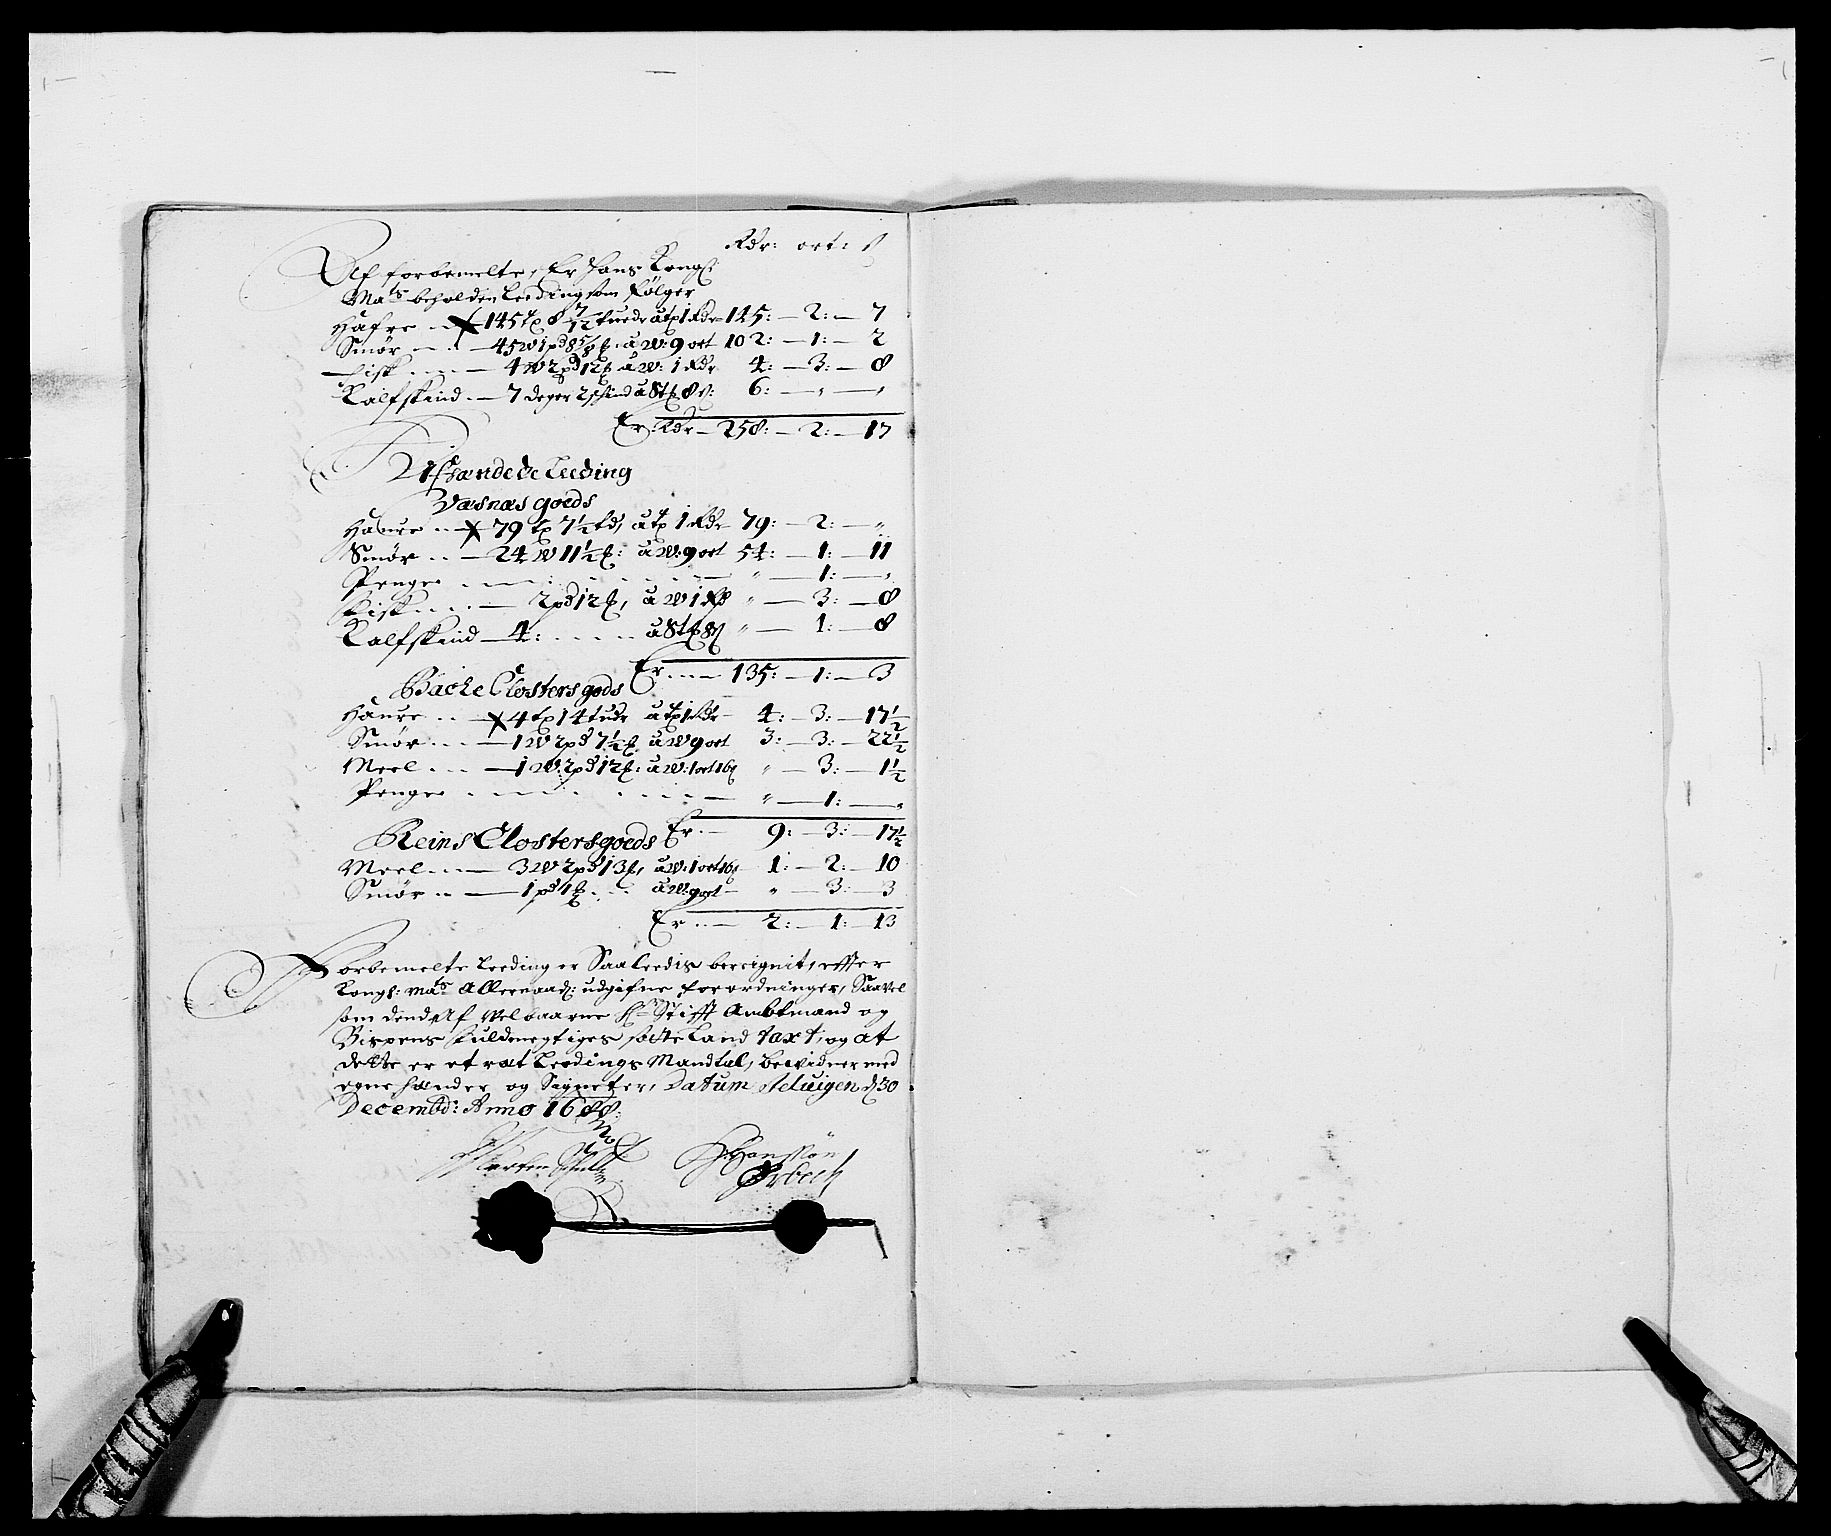 Rdr: ort: ß
Af forbemelte, Er Hans Kongl:
Mats beholden Leeding som følger
Hafre .. — 145 tp 8 7/12 tuede a tp 1 Rdr — 145: — 2: — 7
Smør — .. — 45 W 1 pd 8 5/8 — a W: 9 ort 102: — 1: — 2
Fisk .... — 4 W 2 pd 12 — a W: 1 Rdr 4: — 3: — 8
Kalfskind .— 7 deger 2 skind a St 8 ß: 6: — " — "
Er Rdr — 258: — 2: — 17
Afhændede Leeding
Væsnæs goeds
Haure .. — 79 tp 7½ td, a tp 1 Rdr 79: — 2: — "
Smør .. — 24 W 11½ : a W: 9 ort 54: — 1: — 11
Penge ..... " — 1: — "
Fisk .... — 2 pd 12 , a W 1 Rd " — 3: — 8
Kalfskind — 4: ..... a St 8 ß " — 1: — 8
Er ... — 135: — 1: — 3
Backe Closters gods
Haure .. — 4 tp 14 tude a tp 1 Rdr — 4: — 3: — 17½
Smør ... — 1 W 2 pd 7½ a W 9 ort 3: — 3: — 22½
Meel ... — 1 W: 2 pd 12 : a W: 1 ort 16 ß " — 3: — 1½
Penge ..... — " — 1: — "
Er .. — 9: — 3: — 17½
Reins Closters goeds
Meel ... — 3 W 2 pd 13 , a W: 1 ort 16 ß 1: — 2: — 10
Smør .. — 1 pd 1 ... a W: 9 ort — " — 3: — 3
Er ... — 2: — 1: — 13
Forbemelte Leeding er Saaledis bereignit, effter
Kongl: Mats Allernaad: udgifne forordninger, Saavel
som dend Af Velbaarne Hr Stifft Ambtmand og
Bispens fuldmegtiges satte Land taxt, og at
dette er et ræt Leedings Mandtal, bevidner med
egne hænder og Signeter, Datum d 30
Decembd: Anno 1688:
Morten Schultz
Hanssøn
Ørbech